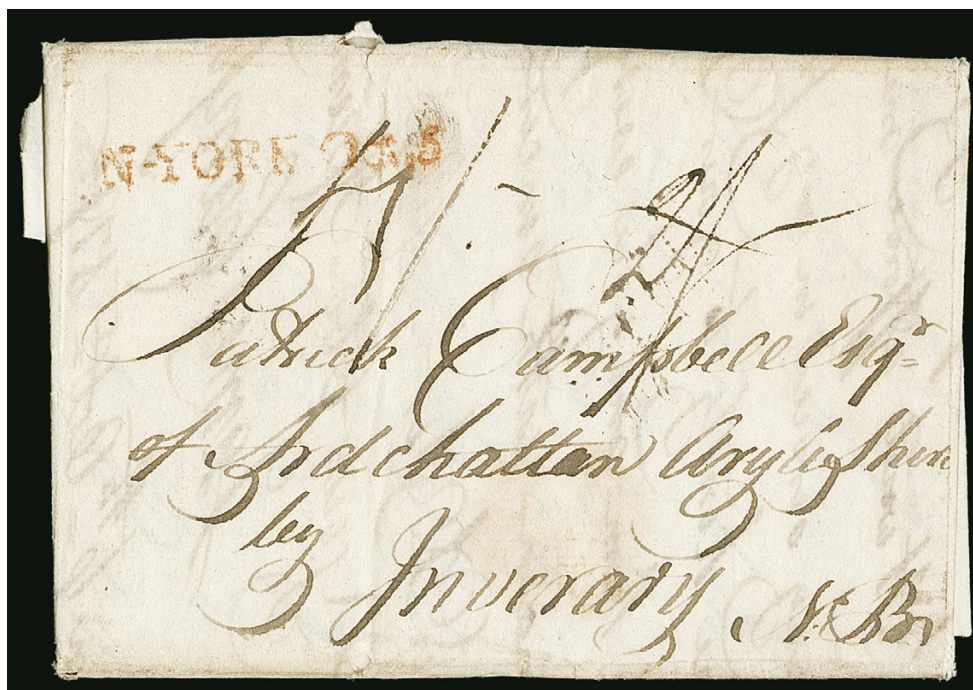 N-YORK Oct. 5
1/-
Patrick Campbell Esqr.
of Ardchattan Argyle Shire
by
Inverary
N: Br